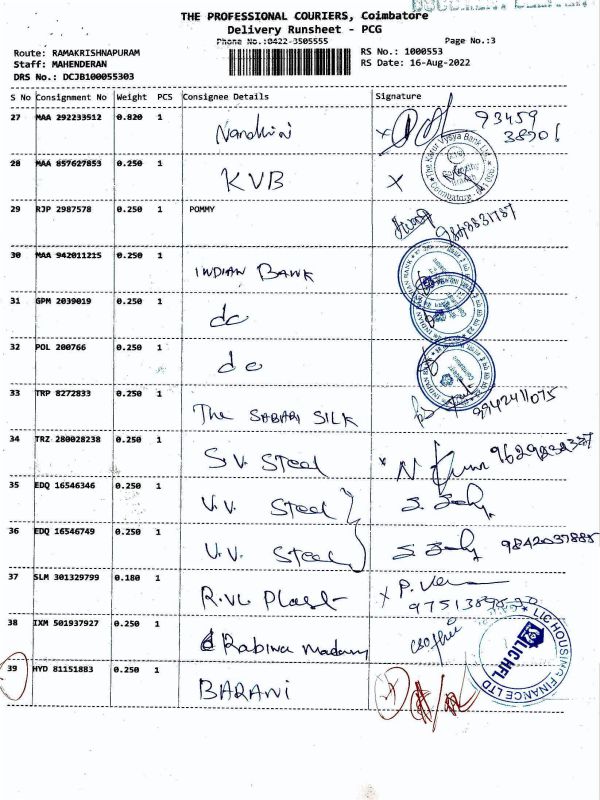 THE PROFESSIONAL COURIERS, Coimbatore
Delivery Runsheet - PCG
Phone No.:0422-3505555
Page No.:3
Route: RAMAKRISHNAPURAM
RS No.: 1000553
Staff: MAHENDERAN
RS Date: 16-Aug-2022
DRS No.: DCJB100055303
S No Consignment No Weight PCS Consignee Details Signature
27 MAA 292233512 0.820 1 Nandhini 93459
38906
28 MAA 857627853 0.250 1 KVB X
The Karur Vysya Bank Ltd.
Coimbatore
29 RJP 2987578 0.250 1 POMMY
30 MAA 942011215 0.250 1 INDIAN BANK
INDIAN BANK
31 GPM 2039019 0.250 1 do
INDIAN BANK
32 POL 200766 0.250 1 do
INDIAN BANK
33 TRP 8272833 0.250 1 The SABARI SILK 9942411075
34 TRZ 280028238 0.250 1 S.V. Steel
35 EDQ 16546346 0.250 1 V.V. Steel
36 EDQ 16546749 0.250 1 V.V. Steel 9842037885
37 SLM 301329799 0.180 1 X
38 IXM 501937927 0.250 1
LIC HOUSING FINANCE LTD
LIC HFL
39 HYD 81151883 0.250 1 BARANI